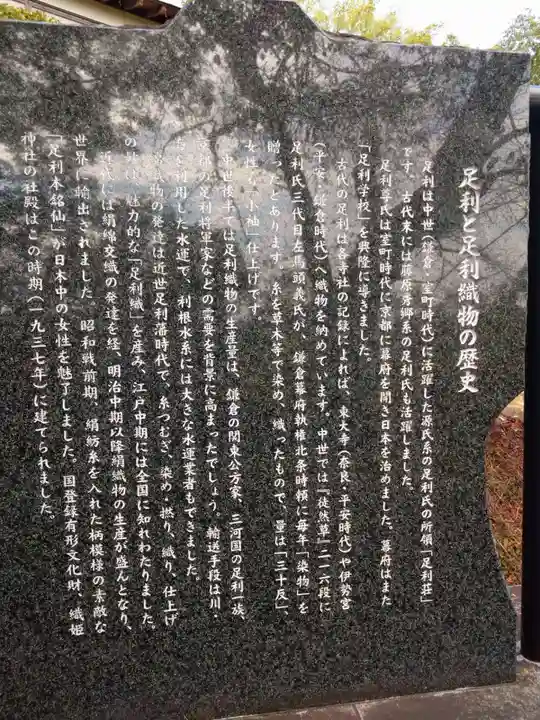 足利と足利織物の歴史
足利は中世(鎌倉・室町時代)に活躍した源氏系の足利氏の所領「足利荘」
です。古代末には藤原秀郷系の足利氏も活躍しました。
足利尊氏は室町時代に京都に幕府を開き日本を治めました。幕府はまた
「足利学校」を興隆に導きました。
古代の足利は各寺社の記録によれば、東大寺(奈良・平安時代)や伊勢宮
(平安・鎌倉時代)へ織物を納めています。中世では『徒然草』二一六段に
足利氏三代目左馬頭義氏が、鎌倉幕府執権北条時頼に毎年「染物」を
贈ったとあります。糸を草木等で染め、織ったもので、量は「三十反」、
女性の「小袖」仕上げです。
中世後半では足利織物の生産量は、鎌倉の関東公方家、三河国の足利一族、
京都の足利将軍家などの需要を背景に高まったでしょう。輸送手段は川・
を利用した水運で、利根水系には大きな水運業者もできました。
織物の発達は近世足利藩時代で、糸つむぎ、染め、撚り、織り、仕上げ
の 魅力的な「足利織」を産み、江戸中期には全国に知れわたりました。
近代には絹綿交織の発達を経、明治中期以降絹織物の生産が盛んとなり、
世界に輸出されました。昭和戦前期、絹紡糸を入れた柄模様の素敵な
「足利本銘仙」が日本中の女性を魅了しました。国登録有形文化財、織姫
神社の社殿はこの時期(一九三七年)に建てられました。